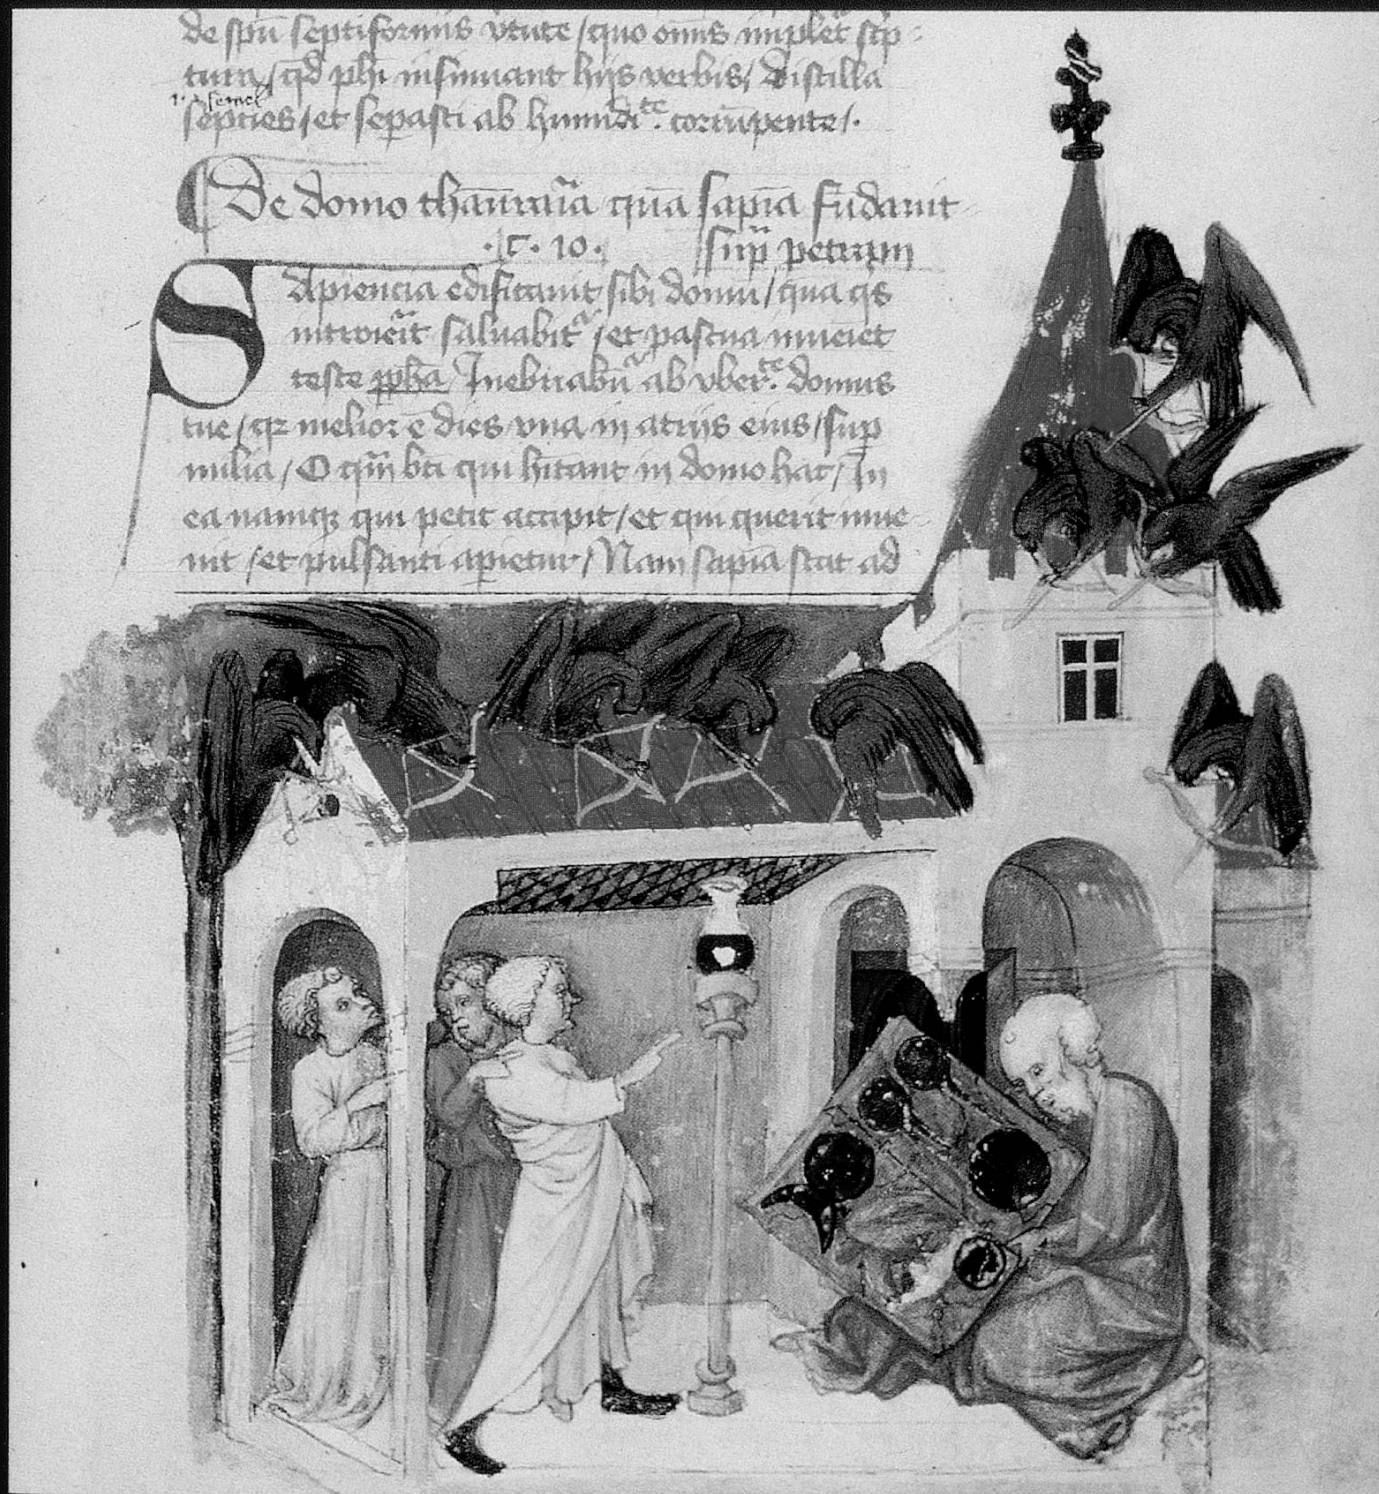 de spū septiformis v̄tute / quo om̄is implet̄ sc̄p
tura / q̄d ph̄i insinuant hijs verbis / Distilla
.i. semel
septies / et sepasti ab humidi.te corrūpente / .
¶ De domo thaūraria quā sapīa fūdauit
.C. 10. sup̄ petram
Sapiencia edificauit sibi domū / quā q̄s
introierit saluabit̄ / et pascua inueniet
teste ppħa / Inebriabūt̄ ab vber.te domus
tue / qꝛ melior ē dies vna in atrijs eius / sup
milia / O qm̄ bt̄i qui hitant in domo hac / In
ea namqꝫ qui petit accipit / et qui querit inue
nit / et pulsanti aperietur / Nam sapīa stat ad